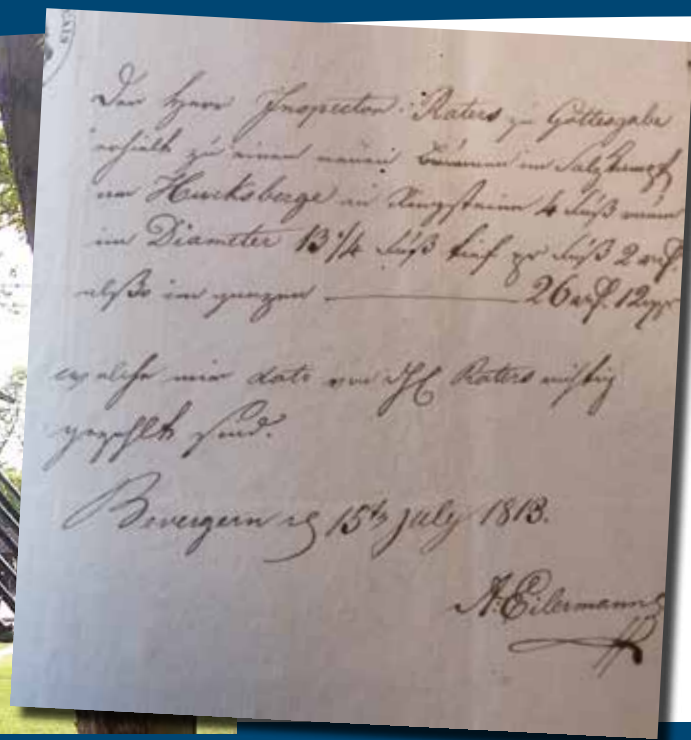 Der Herr Inspector Raters zu Gottesgabe
erhielt zu einen neuen Brunnen im Salzkampf
am Hucksberge an 4 Fuß
im Diameter 13 1/4 Fuß tief pr Fuß 2
also im ganzen ——— 26 12
welche mir dato von H Raters richtig
gezahlt sind.
Bevergern 15t July 1813.
A: Eilermann